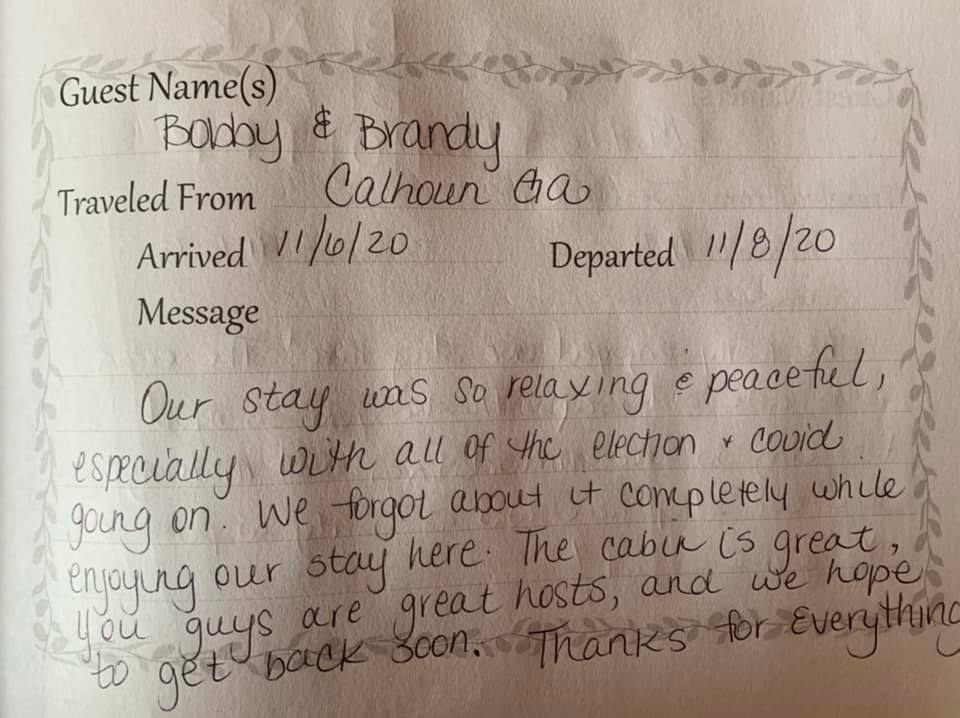 Guest Name(s)
Bobby & Brandy
Traveled From Calhoun Ga
Arrived 11/6/20 Departed 11/8/20
Message
Our stay was so relaxing & peaceful,
especially with all of the election + covid
going on. We forgot about it completely while
enjoying our stay here. The cabin is great,
you guys are great hosts, and we hope
to get back soon. Thanks for Everything